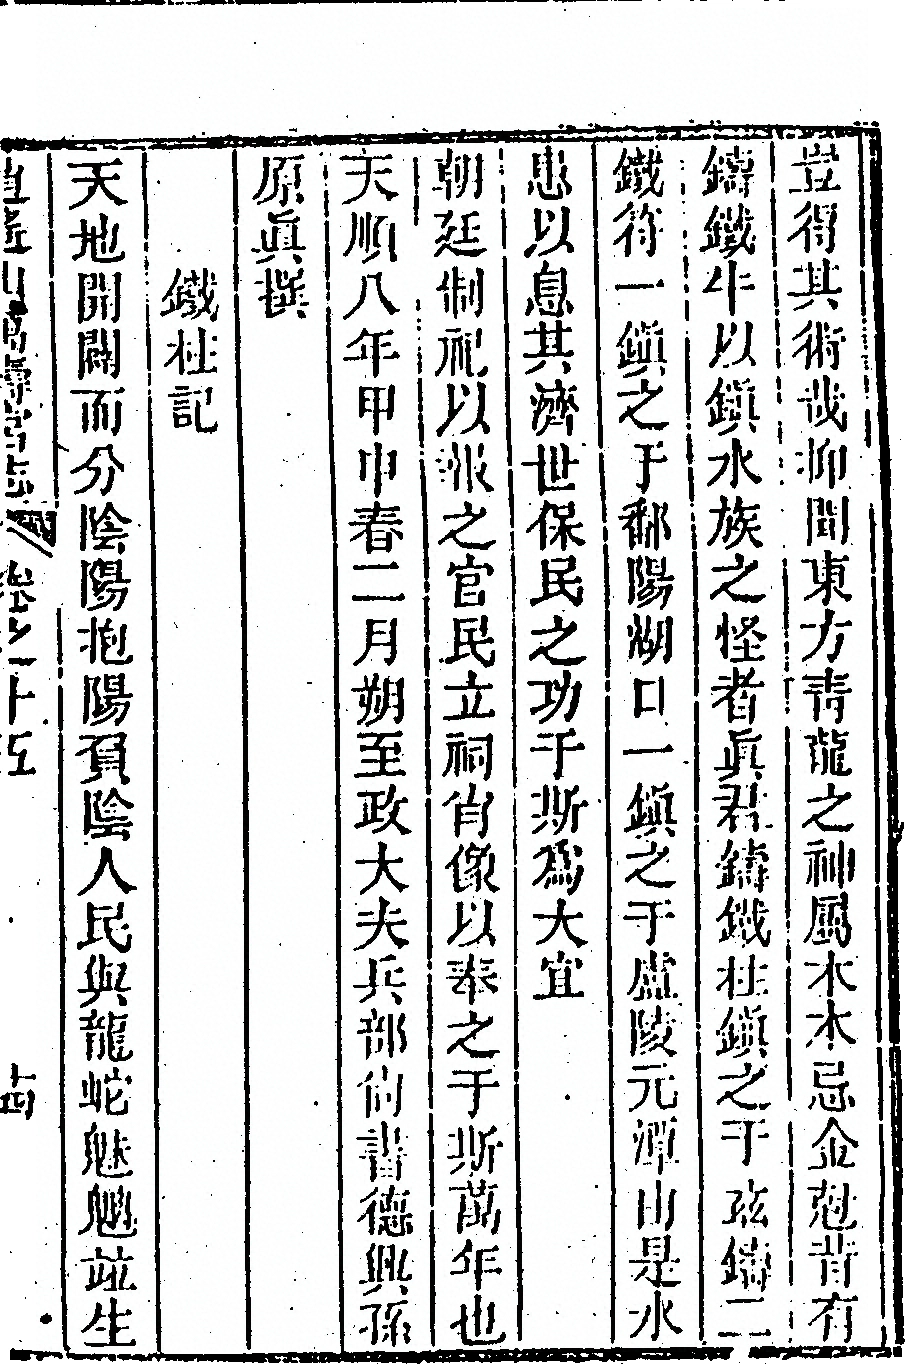 豈得其術哉抑聞東方靑龍之神屬木木忌金尅昔有
鑄鐵牛以鎭水族之怪者眞君鑄鐵柱鎭之于玆鑄二
鐵符一鎭之于鄱陽湖口一鎭之于廬陵元潭由是水
患以息其濟世保民之功于斯爲大宜
朝廷制祀以報之官民立祠肖像以奉之于斯萬年也
天順八年甲申春二月朔至政大夫兵部尙書德興孫
原眞撰
鐵柱記
天地開闢而分陰陽抱陽負陰人民與龍蛇魅魍竝生
逍遙山萬壽宮志 卷之十五 十四